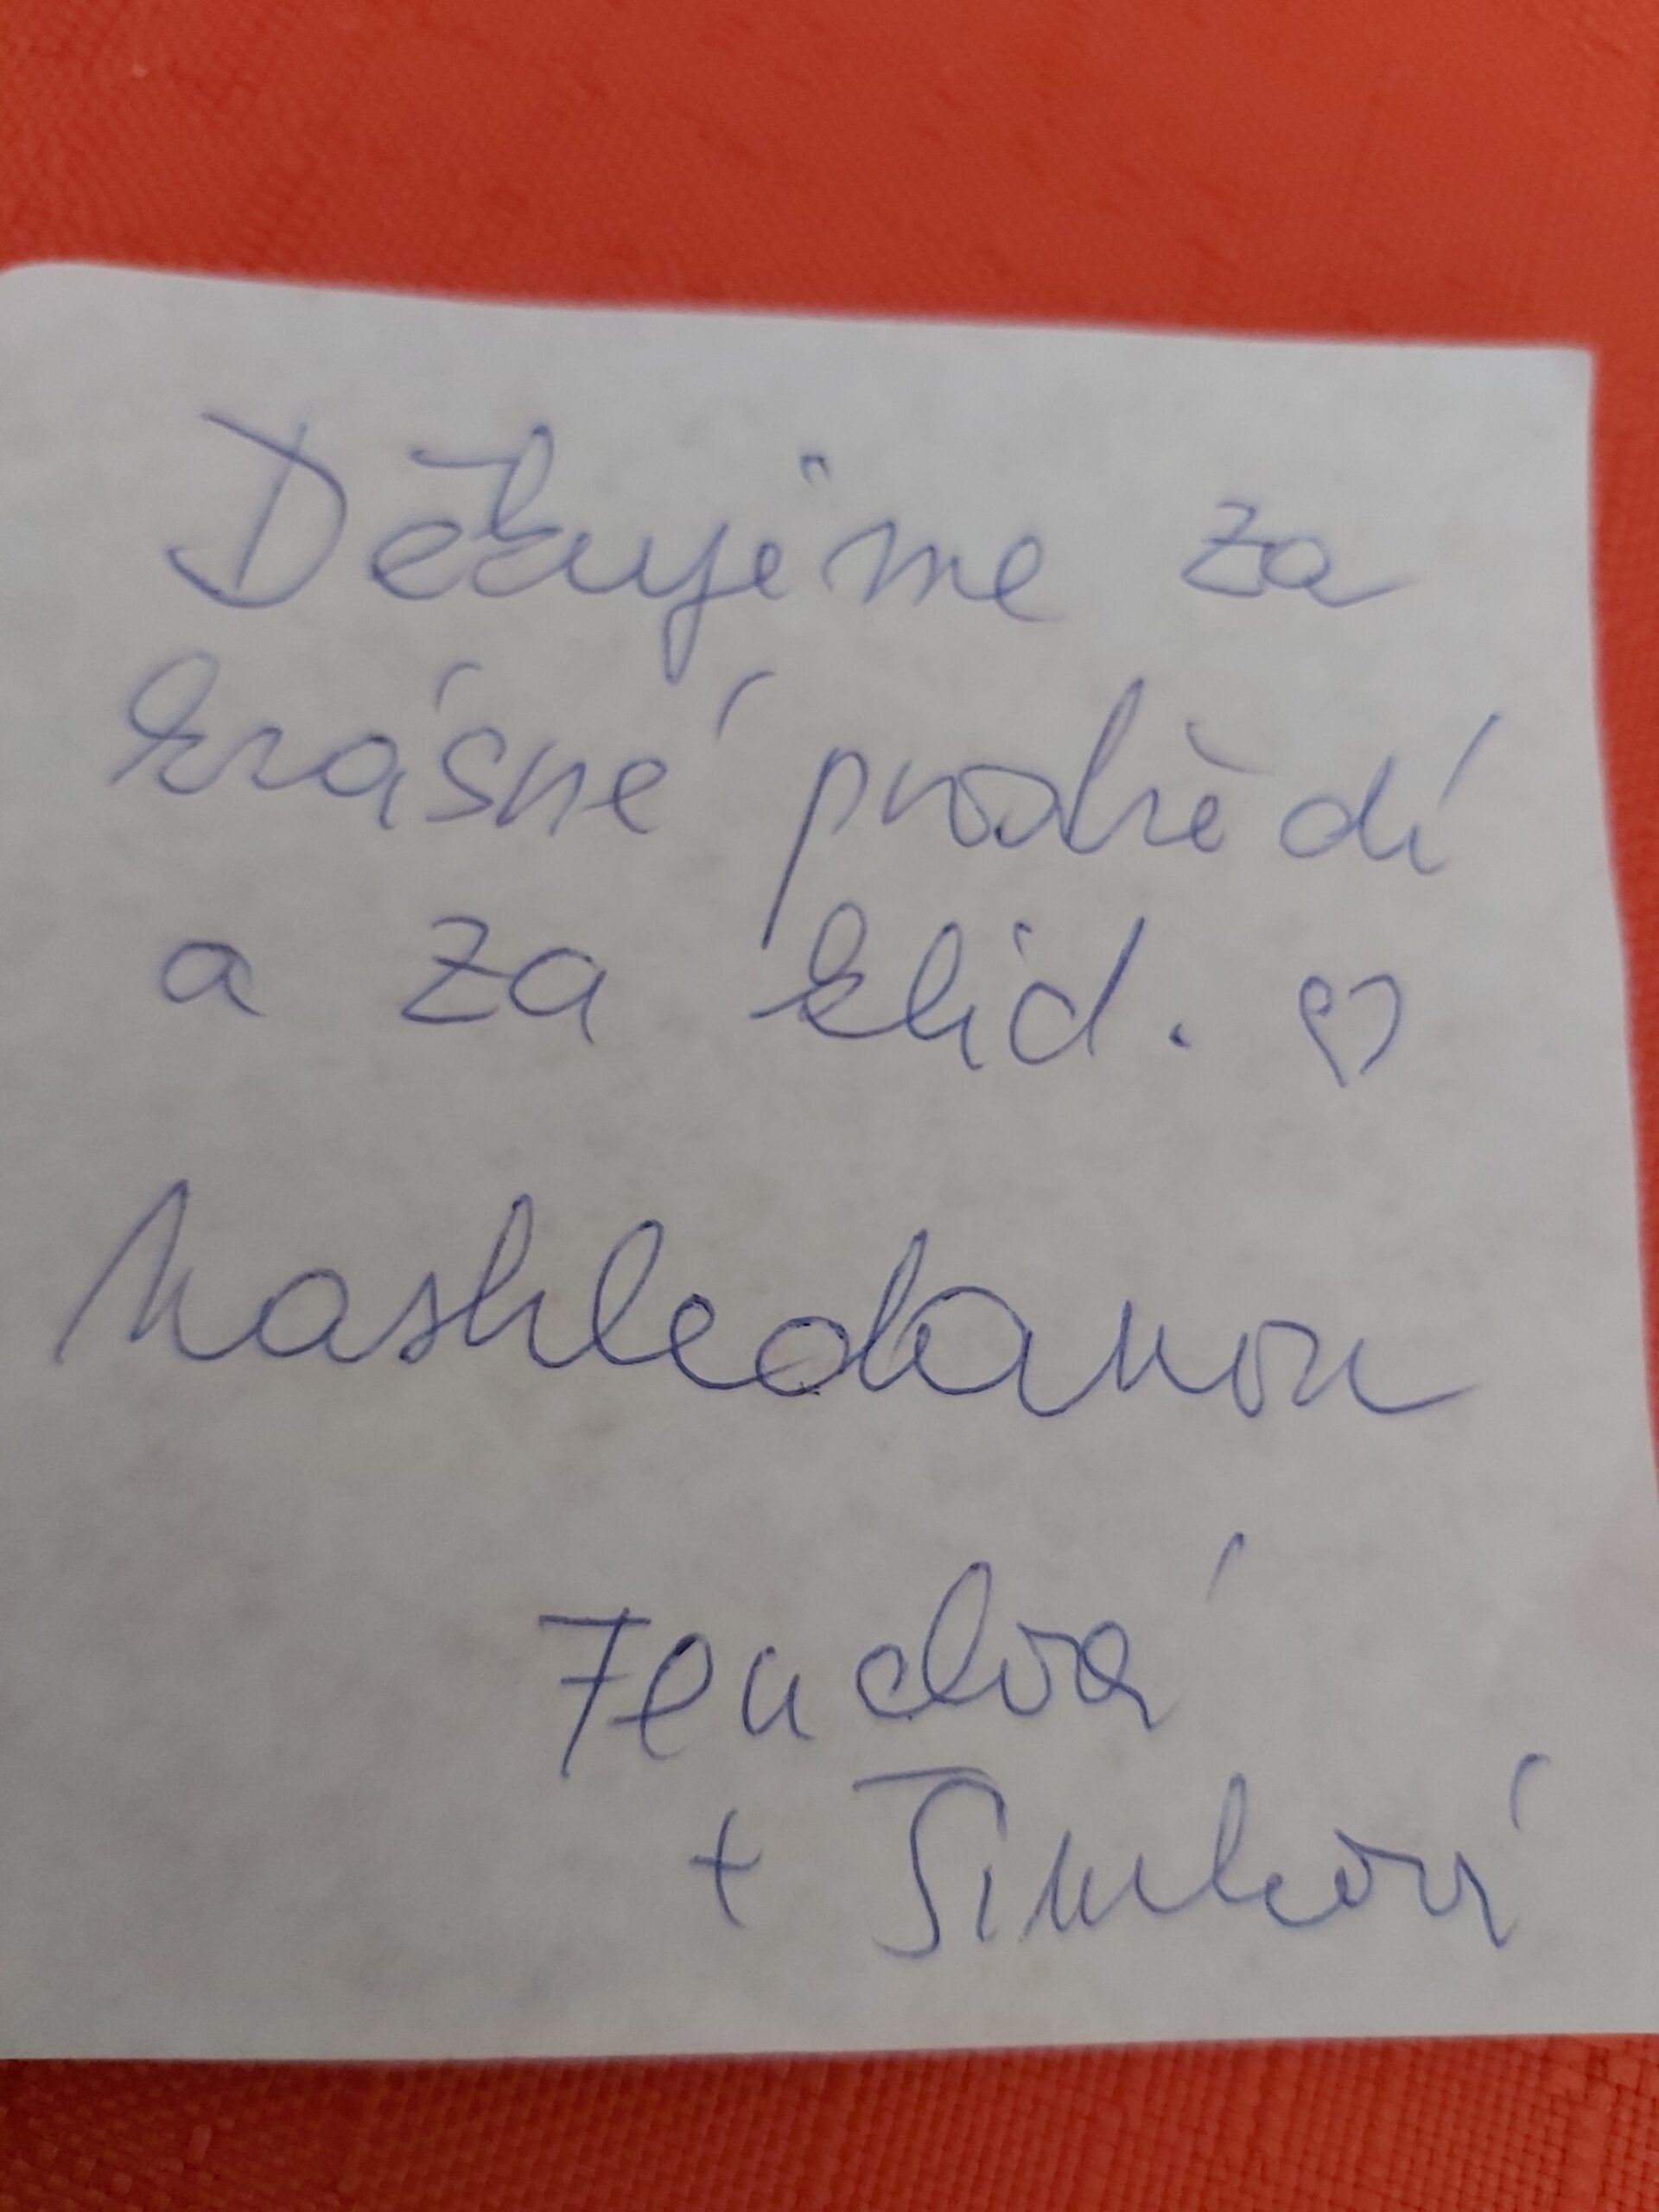 Děkujime za
krásné prostředí
a za klid. ♡
Nashledanou
+ Šimkovi